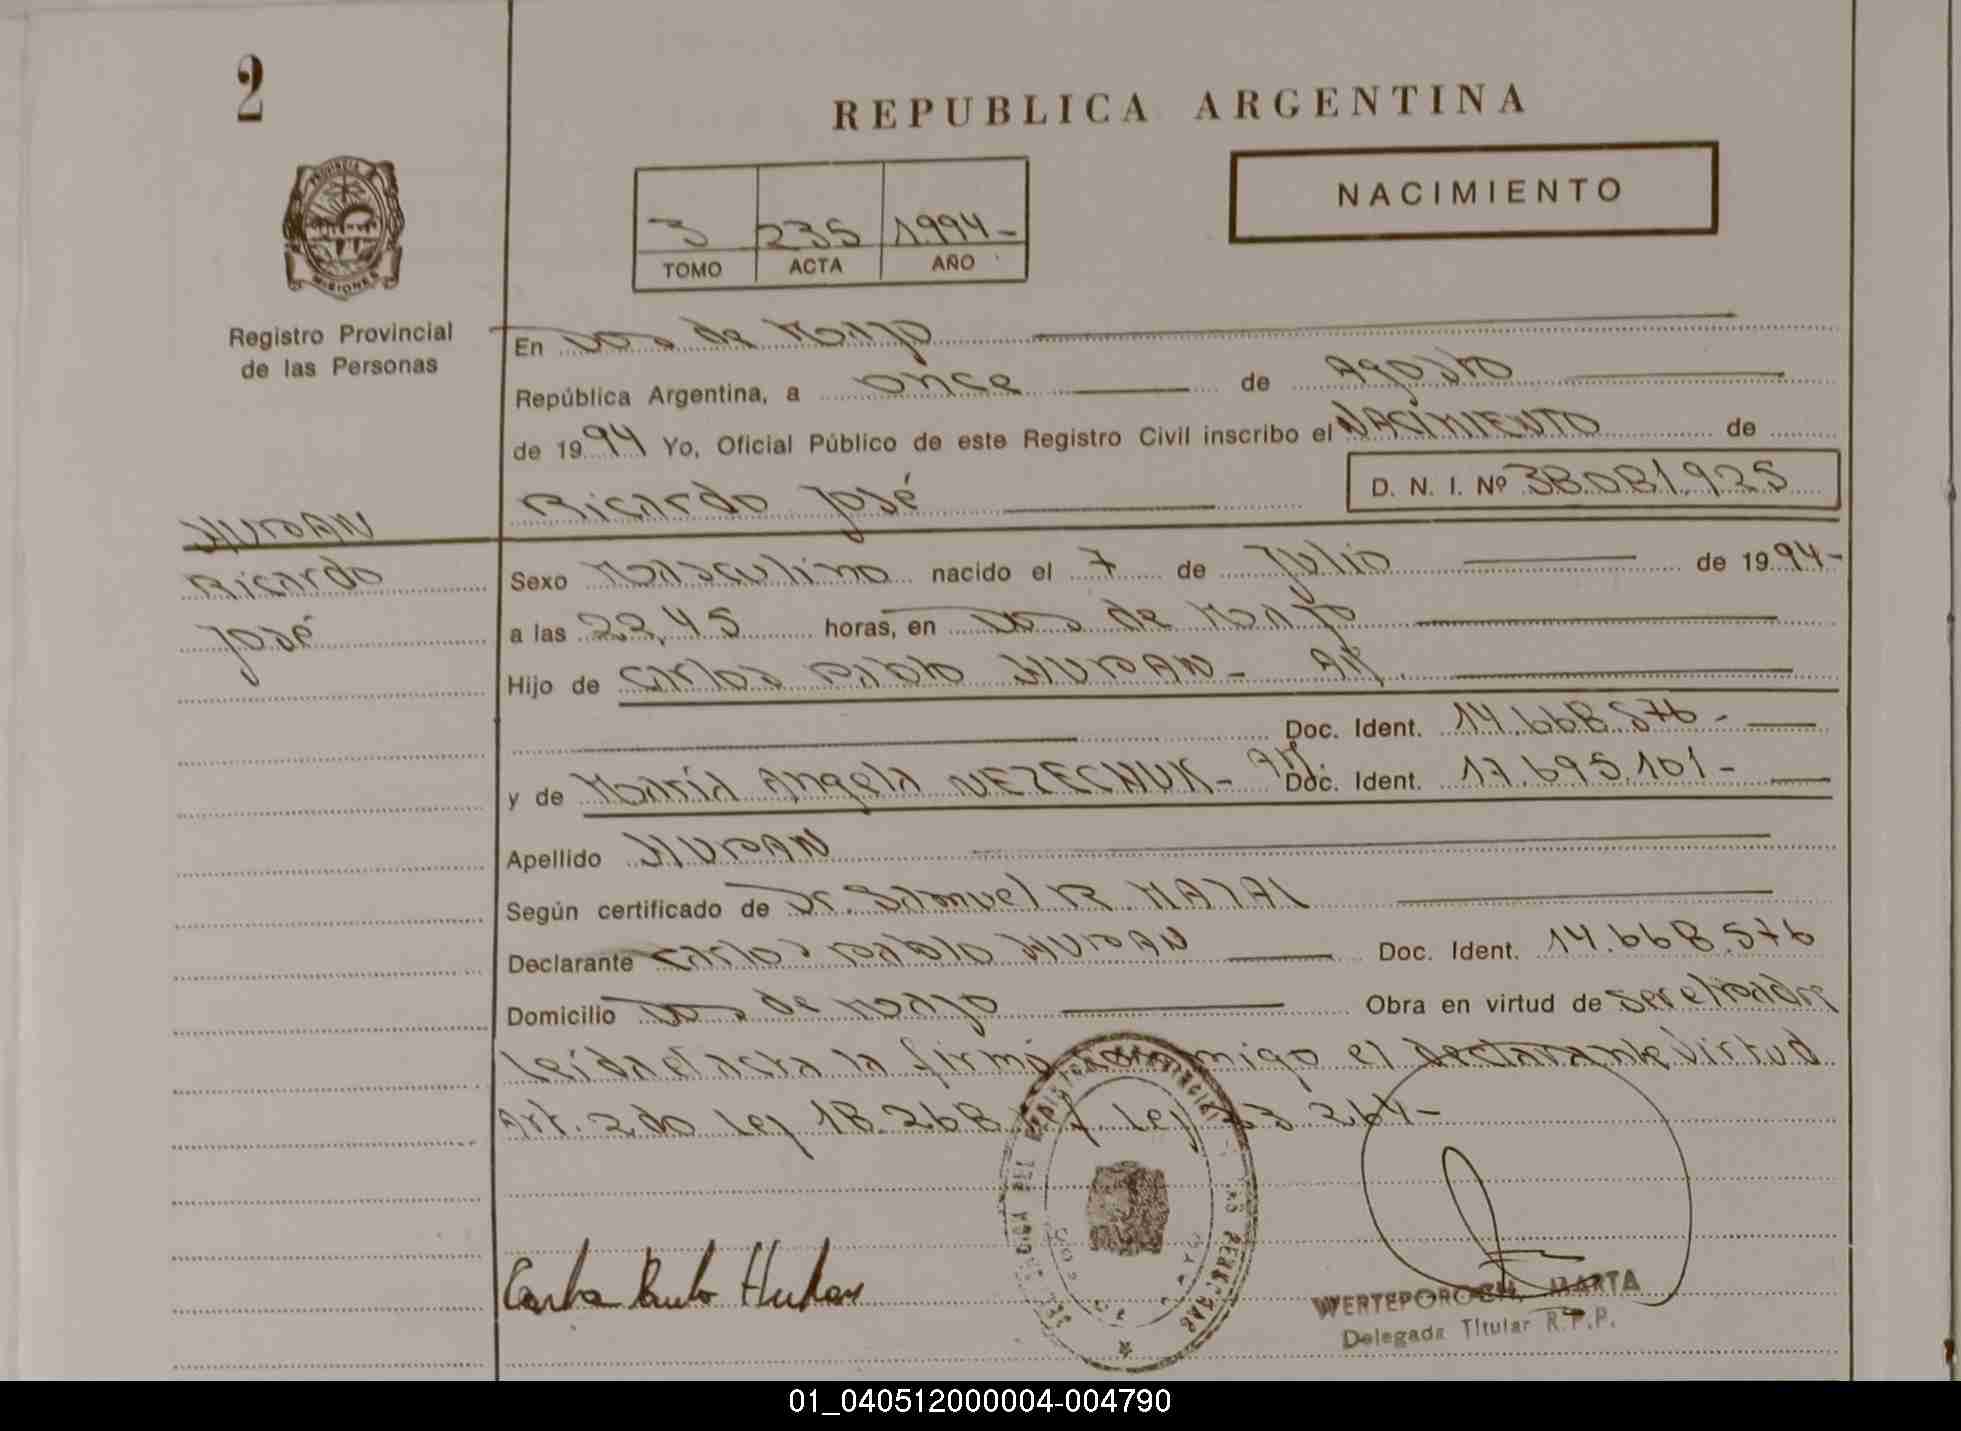 2
REPUBLICA ARGENTINA
NACIMIENTO
3 235 1.994-
TOMO ACTA AÑO
PROVINCIA
MISIONES
Registro Provincial
de las Personas
En Dos de Mayo
República Argentina, a once de Agosto
de 1994 Yo, Oficial Público de este Registro Civil inscribo el NACIMIENTO de
Ricardo José D. N. I. Nº 38.081.925
Ricardo
José
Sexo Masculino nacido el 7 de Julio de 1994-
a las 22,45 horas, en Dos de Mayo
Hijo de Carlos Pablo
Doc. Ident. 14.668.576-
y de María Angela Doc. Ident. 17.695.101-
Apellido
Según certificado de Dr. Samuel R.
Declarante Carlos Pablo Doc. Ident. 14.668.576
Domicilio Dos de Mayo Obra en virtud de ser el padre
leída el acta la firma conmigo el declarante Virtud
Art. 2do Ley 18.268 Ley 23.264-
WERTEPOROCH, MARTA
Delegada Titular R.P.P.
01_040512000004-004790